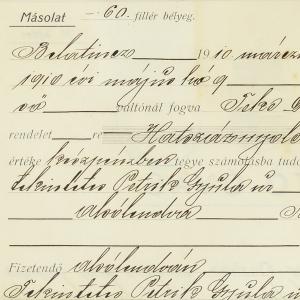 Másolat — 60. fillér bélyeg.
Belatincz 1910 március
1910 évi május hó 9
től váltónál fogva
rendelet re Hatszáznyolc
értéke készpénzben tegye számoltasba tud
Tekintetes Petrik Gyula úr
Alsólendva
Fizetendő Alsólendván
Tekintetes Petrik Gyula ú